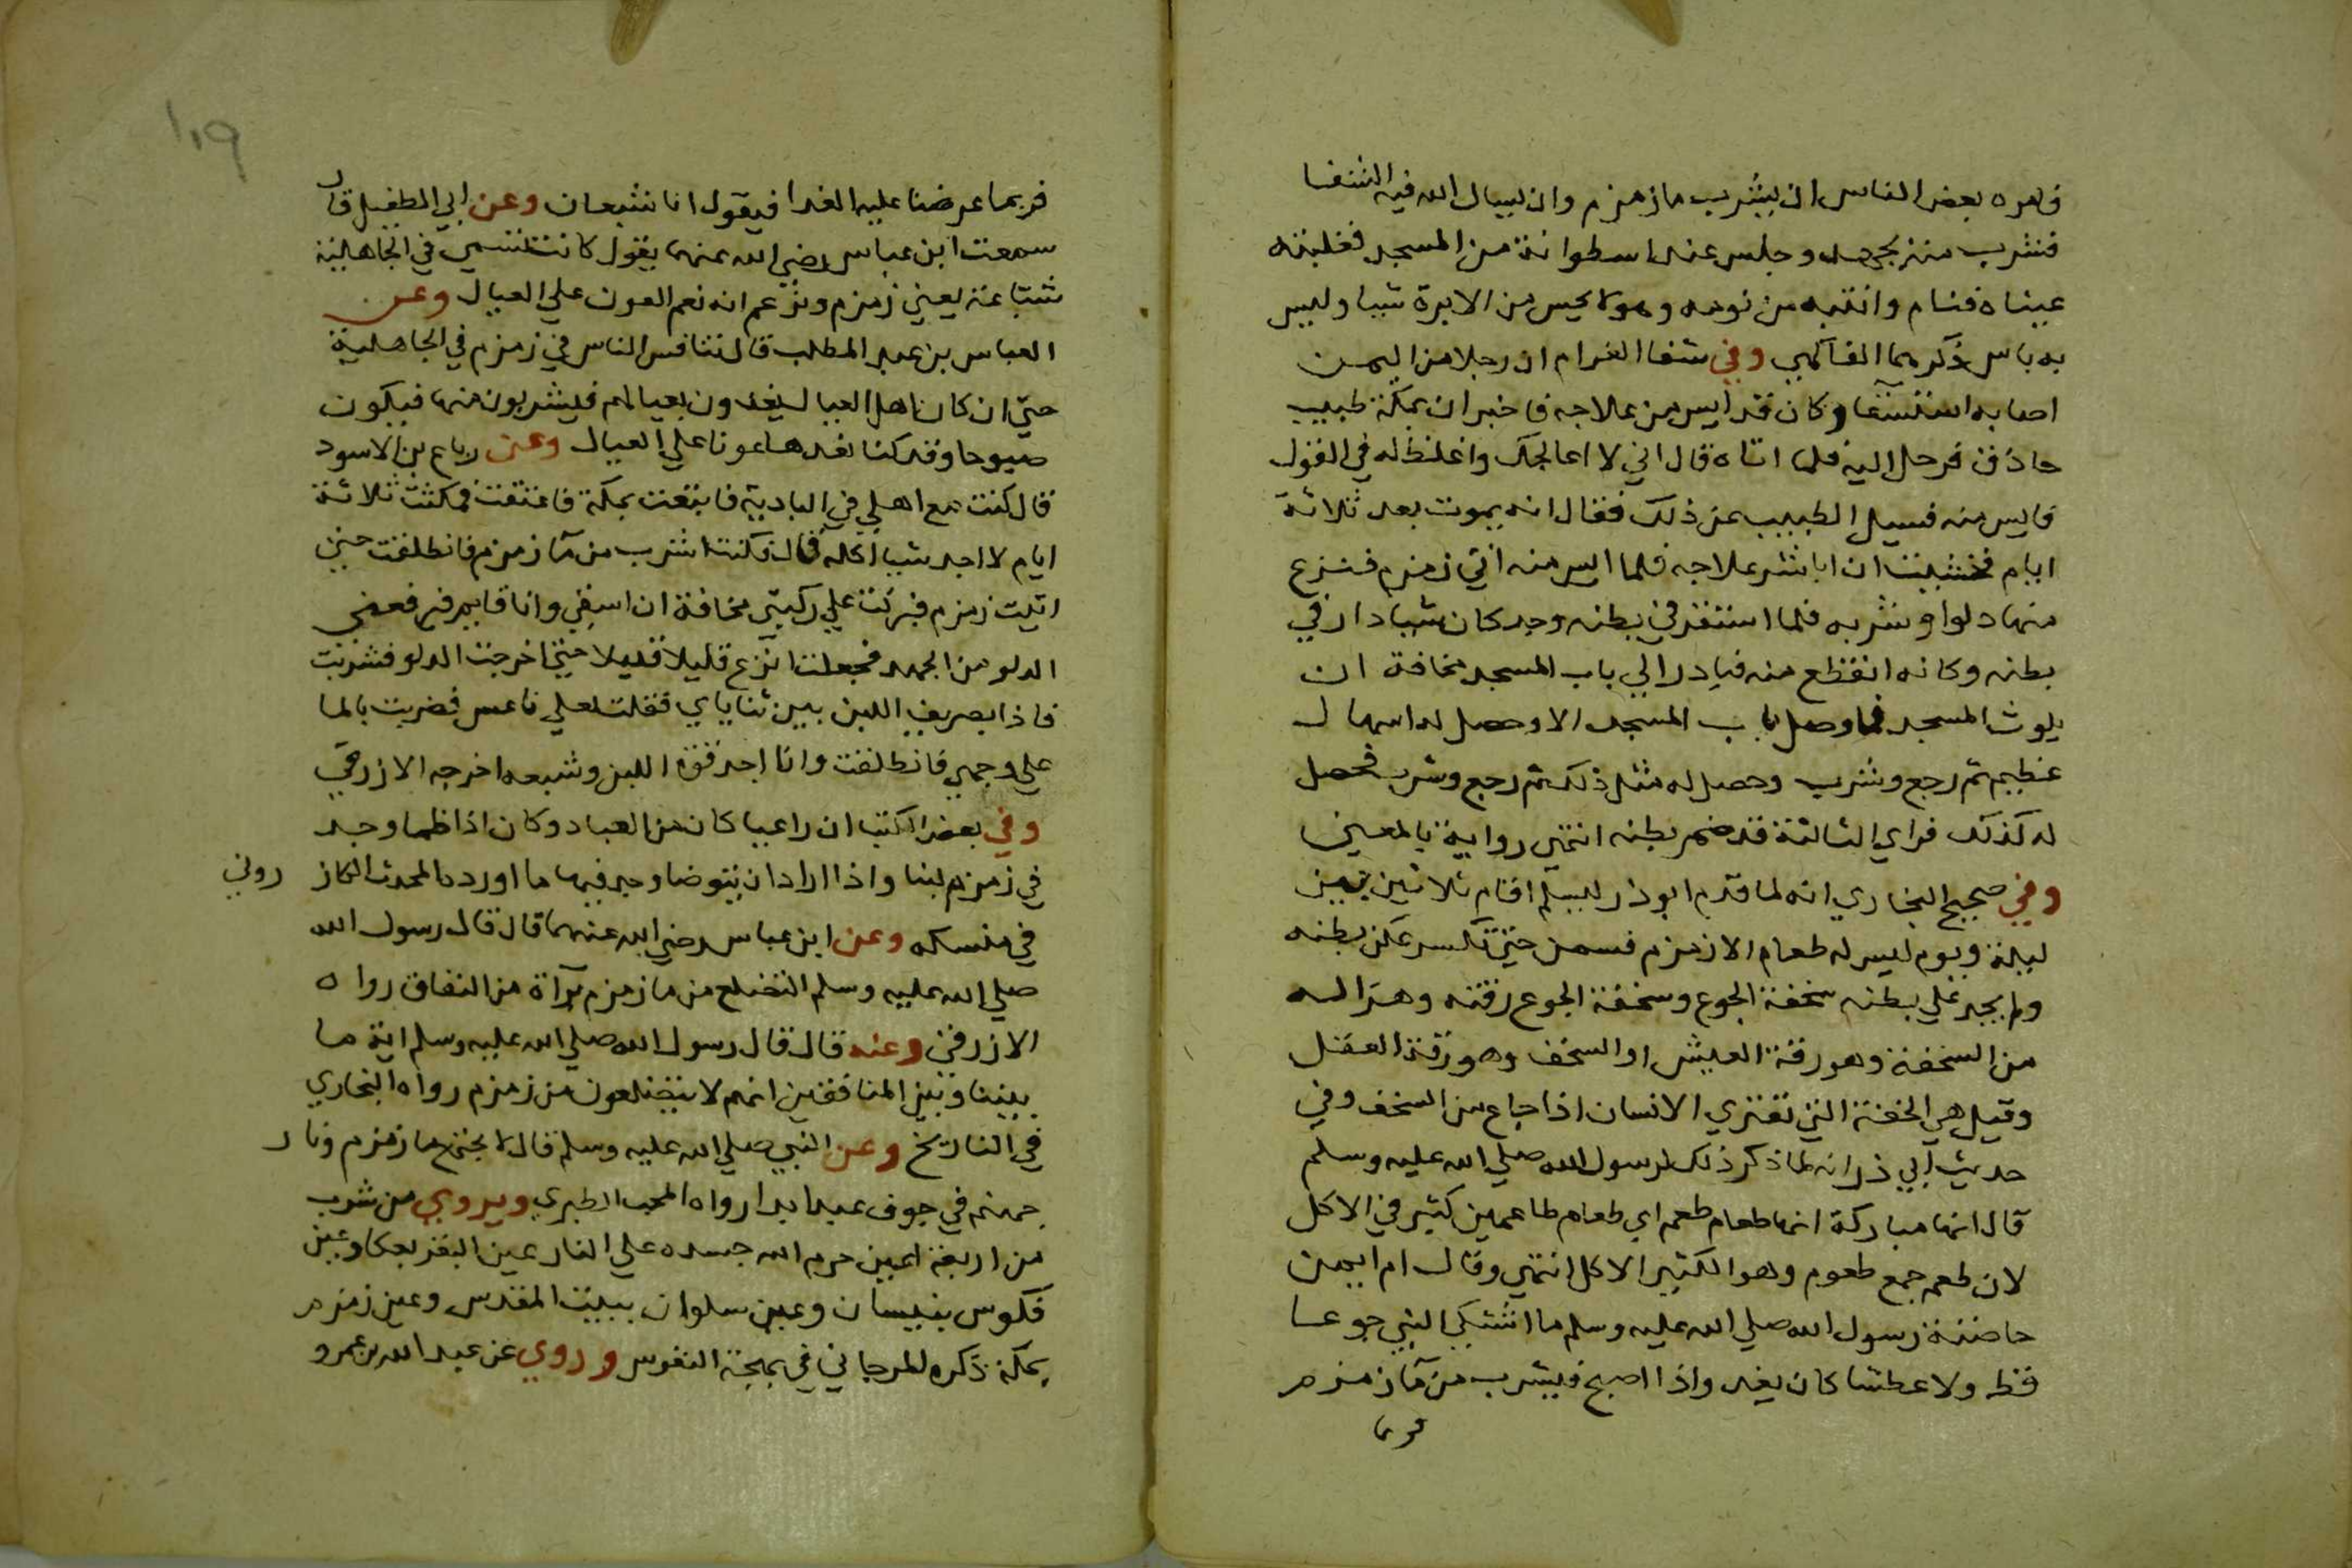 فامره بعض الناس ان يشرب ما زمزم وان ليسال الله فيه الشفا
فشرب منه بجهد وجلس عند اسطوانة من المسجد فغلبته
عيناه فنام وانتبه من نومه وهو لا يحس من الابرة شيا وليس
به باس ذكرهما الفاكهي وفي شفا الغرام ان رجلا من اليمن
اصابه استسقا وكان قد ايس من علاجه فاخبر ان بمكة طبيب
حاذق فرحل اليه فلما اتاه قال اني لا اعالجك واغلظ له في القول
فايس منه فسيل الطبيب عن ذلك فقال انه يموت بعد ثلاثة
ايام فخشيت ان اباشر علاجه فلما ايس منه اتي زمزم فنزع
منها دلوا وشربه فلما استقر في بطنه وجد كان شيا دار في
بطنه وكانه انقطع منه فبادر الي باب المسجد مخافة ان
يلوث المسجد فما وصل باب المسجد الا وحصل له اسهال
عظيم ثم رجع وشرب وحصل له مثل ذلك ثم رجع وشرب فحصل
له كذلك فراي الثالثة قد ضمر بطنه انتهي رواية بالمعني
وفي صحيح البخاري انه لما قدم ابو ذر ليسلم اقام ثلاثين بين
ليلة ويوم ليس له طعام الا زمزم فسمن حتي تكسر عكن بطنه
ولم يجد علي بطنه سخفة الجوع وسخفة الجوع رقته وهزاله
من السخفة وهو رقة العيش او السخف وهو رقة العقل
وقيل هي الخفة التي تعتري الانسان اذا جاع من السخف وفي
حديث ابي ذر انه لما ذكر ذلك لرسول الله صلي الله عليه وسلم
قال انها مباركة انها طعام طعم اي طعام طاعمين كثير في الاكل
لان طعم جمع طعوم وهو الكثير الاكل انتهي وقال ام ايمن
حاضنة رسول الله صلي الله عليه وسلم ما اشتكي النبي جوعا
قط ولا عطشا كان يغدو اذا اصبح فيشرب من مآ زمزم
فربما
١٠٩
فربما عرضنا عليه الغدا فيقول انا شبعان وعن ابي الطفيل قال
سمعت ابن عباس رضي الله عنهما يقول كانت تسمي في الجاهلية
شباعة يعني زمزم ونزعم انه نعم العون علي العيال وعن
العباس بن عبد المطلب قال تنافس الناس في زمزم في الجاهلية
حتي ان كان اهل العيال يغدون بعيالهم فيشربون منها فيكون
صبوحا وقد كنا نعدها عونا علي العيال وعن رباع بن الاسود
قال كنت مع اهلي في البادية فابتعت بمكة فاعتقت فمكثت ثلاثة
ايام لا اجد شيا اكله قال فكنت اشرب من مآ زمزم فانطلقت حتي
اتيت زمزم فبركت علي ركبتي مخافة ان اسقي وانا قايم فيرفعني
الدلو من الجهد فجعلت انزع قليلا قليلا حتي اخرجت الدلو فشربت
فاذا بصريف اللبن بين ثناياي فقلت لعلي ناعس فضربت بالما
علي وجهي فانطلقت وانا اجد قوة اللبن وشبعه اخرجه الازرقي
وفي بعض الكتب ان راعيا كان من العباد وكان اذا ظما وجد
في زمزم لبنا واذا اراد ان يتوضا وجد فيها ما اورده المحدث الكاز روني
في منسكه وعن ابن عباس رضي الله عنهما قال قال رسول الله
صلي الله عليه وسلم التضلع من ما زمزم برآة من النفاق رواه
الازرقي وعنه قال قال رسول الله صلي الله عليه وسلم اية ما
بيننا وبين المنافقين انهم لا يتضلعون من زمزم رواه البخاري
في التاريخ وعن النبي صلي الله عليه وسلم قال لا يجتمع ما زمزم ونار
جهنم في جوف عبد ابدا رواه المحب الطبري ويروي من شرب
من اربعة اعين حرم الله جسده علي النار عين البقر بعكا وعين
فكوس بنيسان وعين سلوان ببيت المقدس وعين زمزم
بمكة ذكره المرجاني في بهجة النفوس وروي عن عبد الله بن عمرو